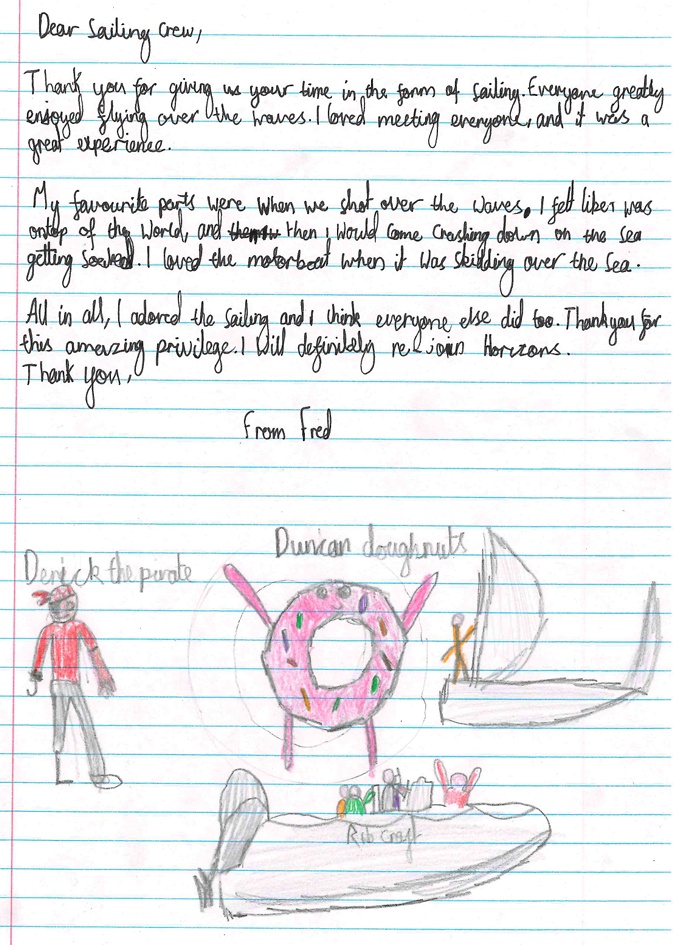 Dear Sailing Crew,
Thank you for giving us your time in the form of sailing. Everyone greatly
enjoyed flying over the waves. I loved meeting everyone, and it was a
great experience.
My favourite parts were when we shot over the waves, I felt like i was
ontop of the world, and then i would come crashing down on the sea
getting soaked. I loved the motorboat when it was skidding over the sea.
All in all, I adored the sailing and i think everyone else did too. Thankyou for
this amazing privilege. I will definitely re-join Horizons.
Thank you,
From Fred
Duncan doughnuts
Derick the pirate
Rib Craft